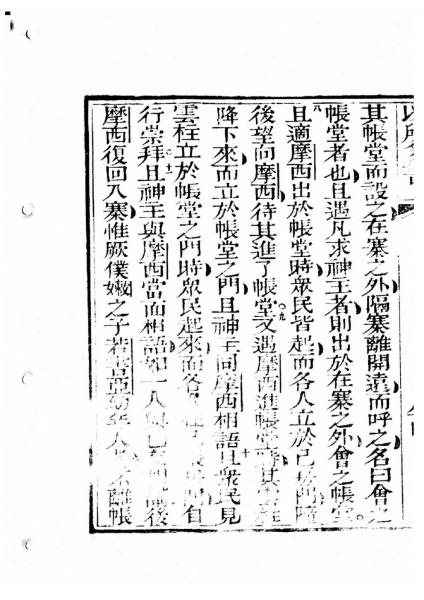 其帳堂而設之在寨之外隔寨離開遠而呼之名曰會之
帳堂者也且遇凡求神主者則出於在寨之外會之帳堂。
八且適摩西出於帳堂時眾民皆起而各人立於己
後望向摩西待其進了帳堂。九又遇摩西進帳堂時其雲柱
降下來而立於帳堂之門且神主同摩西相語。十且眾民見
雲柱立於帳堂之門時眾民起來而各
行崇拜。十一且神主與摩西當面相語如一人與己
摩西復回入寨惟厥僕嫩之子若書亞幼年人 不離帳